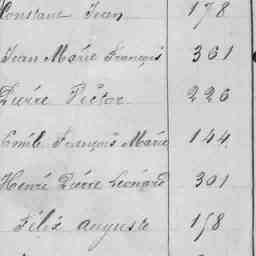 Constant Jean 178
Jean Marie François 361
Pierre Victor 226
Emile François Marie 144
Henri Pierre Léonard 301
Félix Auguste 158